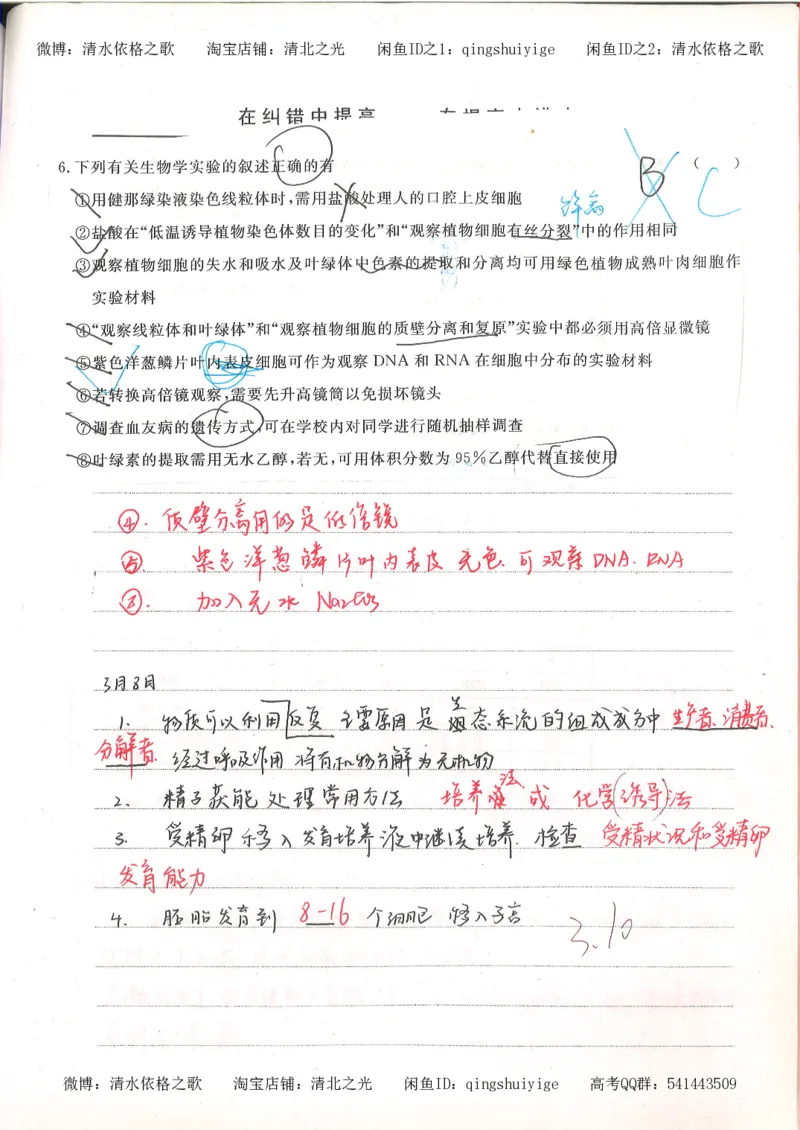 微博：清水依格之歌 淘宝店铺：清北之光 闲鱼ID之1：qingshuiyige 闲鱼ID之2：清水依格之歌
在纠错中提高
6.下列有关生物学实验的叙述正确的有 B （ ） C
①用健那绿染液染色线粒体时,需用盐酸处理人的口腔上皮细胞
解离
②盐酸在“低温诱导植物染色体数目的变化”和“观察植物细胞有丝分裂”中的作用相同
③观察植物细胞的失水和吸水及叶绿体中色素的提取和分离均可用绿色植物成熟叶肉细胞作
实验材料
④“观察线粒体和叶绿体”和“观察植物细胞的质壁分离和复原”实验中都必须用高倍显微镜
⑤紫色洋葱鳞片叶内表皮细胞可作为观察 DNA 和 RNA 在细胞中分布的实验材料
⑥若转换高倍镜观察,需要先升高镜筒以免损坏镜头
⑦调查血友病的遗传方式,可在学校内对同学进行随机抽样调查
⑧叶绿素的提取需用无水乙醇,若无,可用体积分数为 95%乙醇代替直接使用
④. 质壁分离用的是低倍镜
⑤. 紫色洋葱鳞片叶内表皮 无色. 可观察 DNA. RNA
加入无水 Na₂CO₃
3月8日
1. 物质可以利用反复 主要原因是生态系统的组成成分中 生产者、消费者、
分解者 经过呼吸作用 将有机物分解为无机物
2. 精子获能处理常用方法 培养法 或 化学(诱导)法
3. 受精卵移入发育培养液中继续培养. 检查 受精状况和受精卵
发育能力
4. 胚胎发育到 8-16 个细胞 移入子宫
3.10
微博：清水依格之歌 淘宝店铺：清北之光 闲鱼ID：qingshuiyige 高考QQ群：541443509